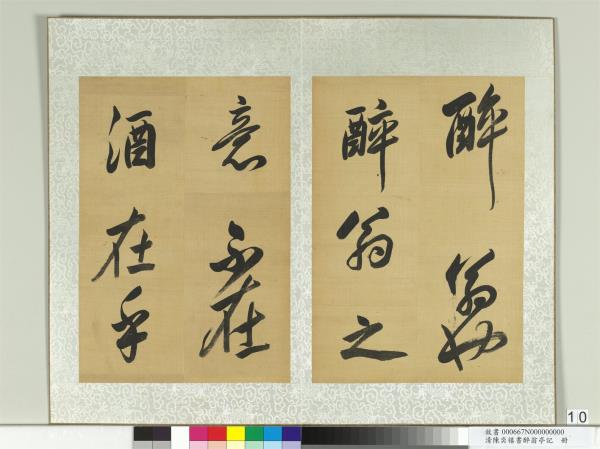 醉翁也
醉翁之
意不在
酒在乎
10
故書 000667N000000000
清陳奕禧書醉翁亭記 冊